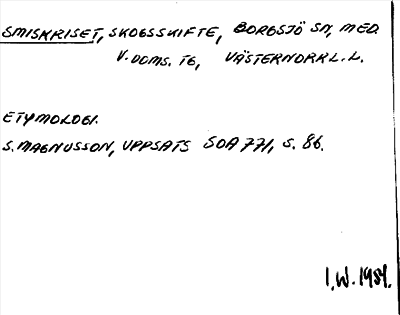 SMISKRISET, SKOGSSKIFTE, BORGSJÖ SN, MED.
V. DOMS. TG, VÄSTERNORRL. L.
ETYMOLOGI.
S. MAGNUSSON, UPPSATS SOA 771, S. 86.
I.W. 1981.